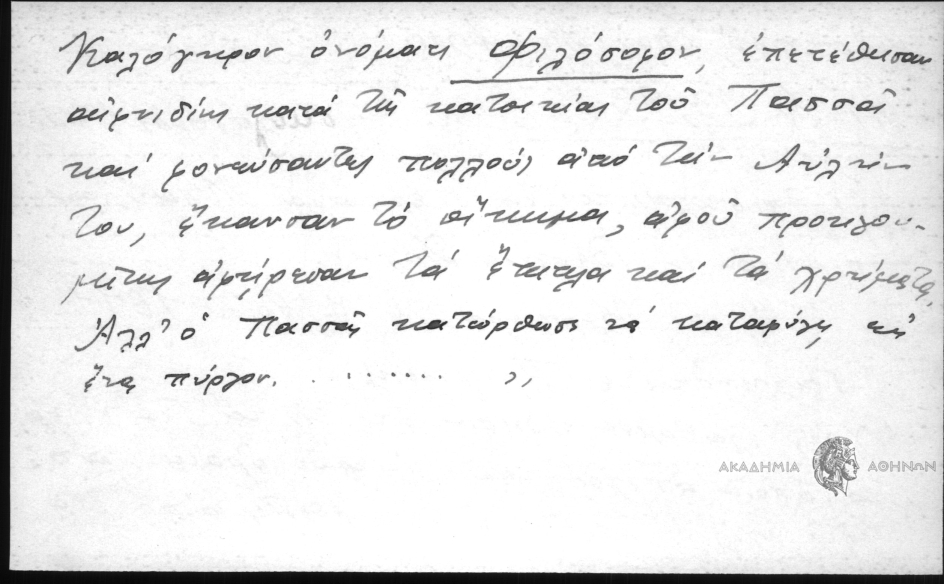 Καλόγηρον ὀνόματι Φιλόσοφον, ἐπετέθησαν
αἰφνιδίως κατά τῆς κατοικίας τοῦ Πασσᾶ
καί φονεύσαντες πολλούς ἀπό τήν Αὐλήν
του, ἔκαυσαν τό οἴκημα, ἀφοῦ προηγου-
μένως ἀφῄρεσαν τά ἔπιπλα καί τά χρήματα.
Ἀλλ' ὁ Πασσᾶς κατώρθωσε νά καταφύγῃ εἰς
ἕνα πύργον. ......... ,,
ΑΚΑΔΗΜΙΑ ΑΘΗΝΩΝ